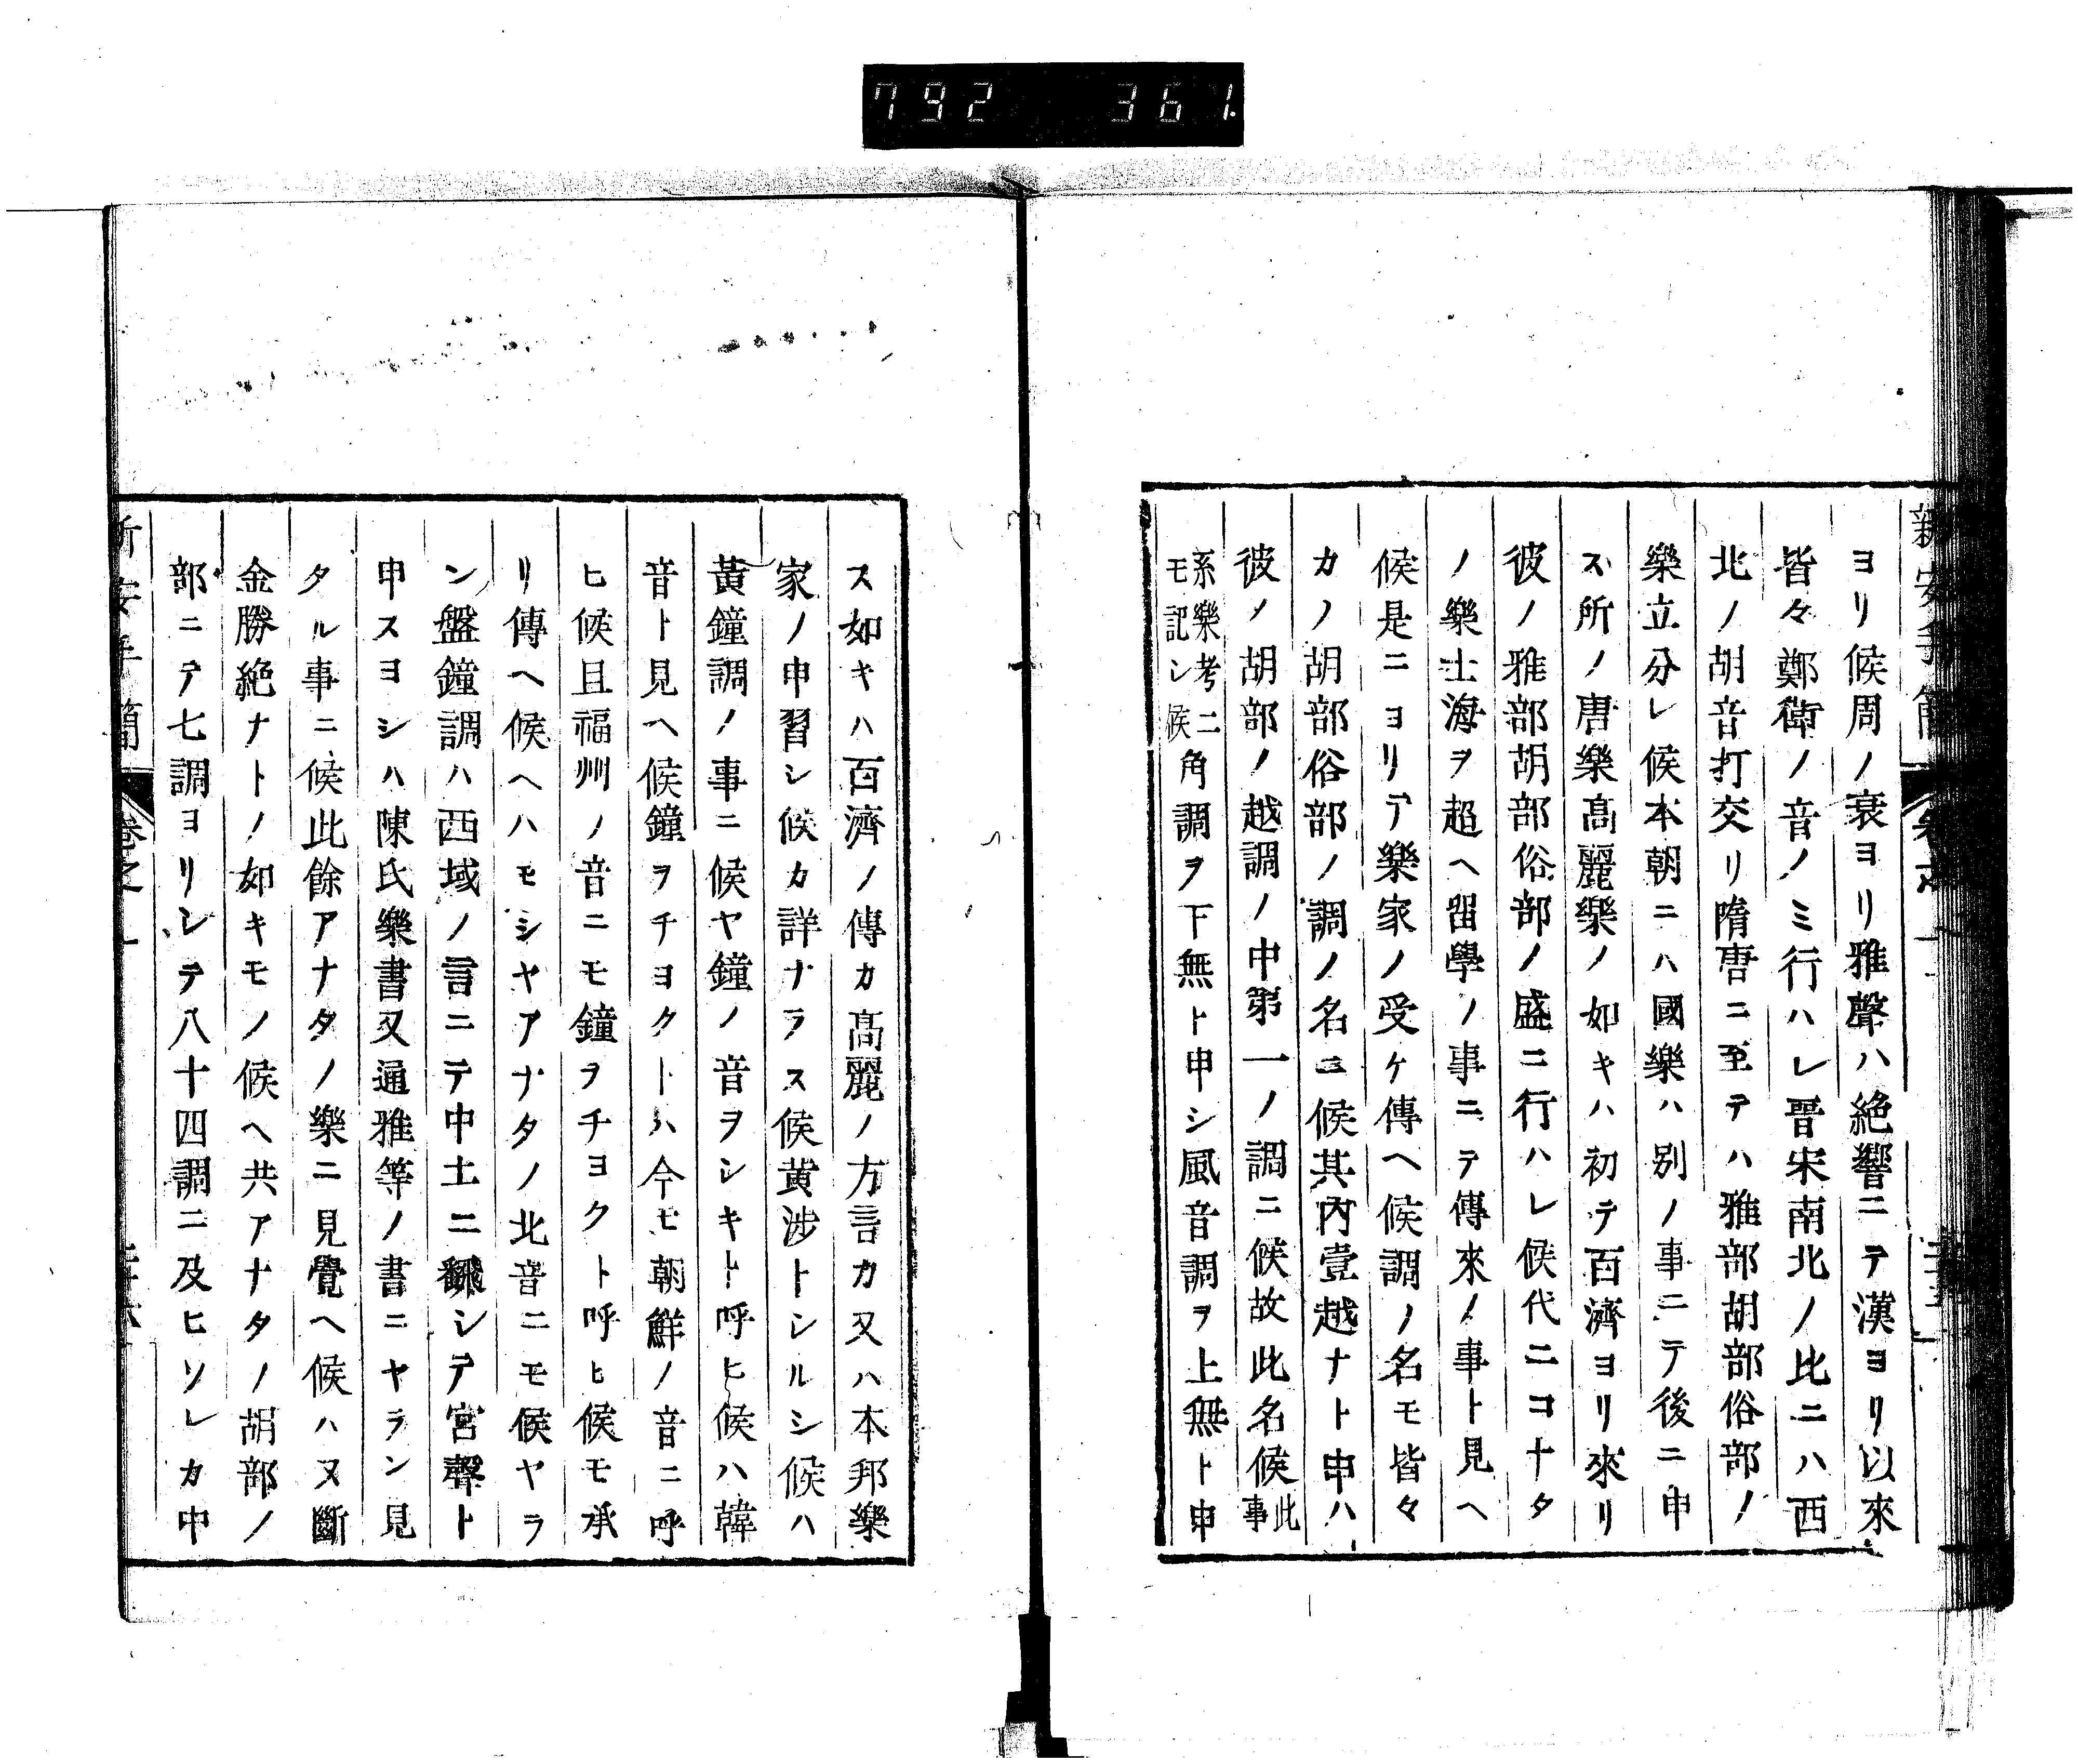 792 361.
新安手簡
ヨリ候周ノ衰ヨリ雅聲ハ絶響ニテ漢ヨリ以來
皆々鄭衛ノ音ノミ行ハレ晋宋南北ノ比ニハ西
北ノ胡音打交リ隋唐ニ至テハ雅部胡部俗部ノ
樂立分レ候本朝ニハ國樂ハ別ノ事ニテ後ニ申
ス所ノ唐樂高麗樂ノ如キハ初テ百濟ヨリ來リ
彼ノ雅部胡部俗部ノ盛ニ行ハレ候代ニコナタ
ノ樂士海ヲ超ヘ留學ノ事ニテ傳來ノ事ト見ヘ
候是ニヨリテ樂家ノ受ケ傳ヘ候調ノ名モ皆々
カノ胡部俗部ノ調ノ名ニ候其内壹越ナト申ハ
彼ノ胡部ノ越調ノ中第一ノ調ニ候故此名候此事
系樂考ニモ記シ候角調ヲ下無ト申シ風音調ヲ上無ト申
ス如キハ百濟ノ傳カ高麗ノ方言カ又ハ本邦樂
家ノ申習シ候カ詳ナラス候黄渉トシルシ候ハ
黃鐘調ノ事ニ候ヤ鐘ノ音ヲシキト呼ヒ候ハ韓
音ト見ヘ候鐘ヲチヨクトハ今モ朝鮮ノ音ニ呼
ヒ候且福州ノ音ニモ鐘ヲチヨクト呼ヒ候モ承
リ傳ヘ候ヘハモシヤアナタノ北音ニモ候ヤラ
ン盤鐘調ハ西域ノ言ニテ中土ニ飜シテ宮聲ト
申スヨシハ陳氏樂書又通雅等ノ書ニヤラン見
タル事ニ候此餘アナタノ樂ニ見覺ヘ候ハヌ斷
金勝絶ナトノ如キモノ候ヘ共アナタノ胡部ノ
部ニテ七調ヨリシテ八十四調ニ及ヒソレカ中
新安手簡 卷之一